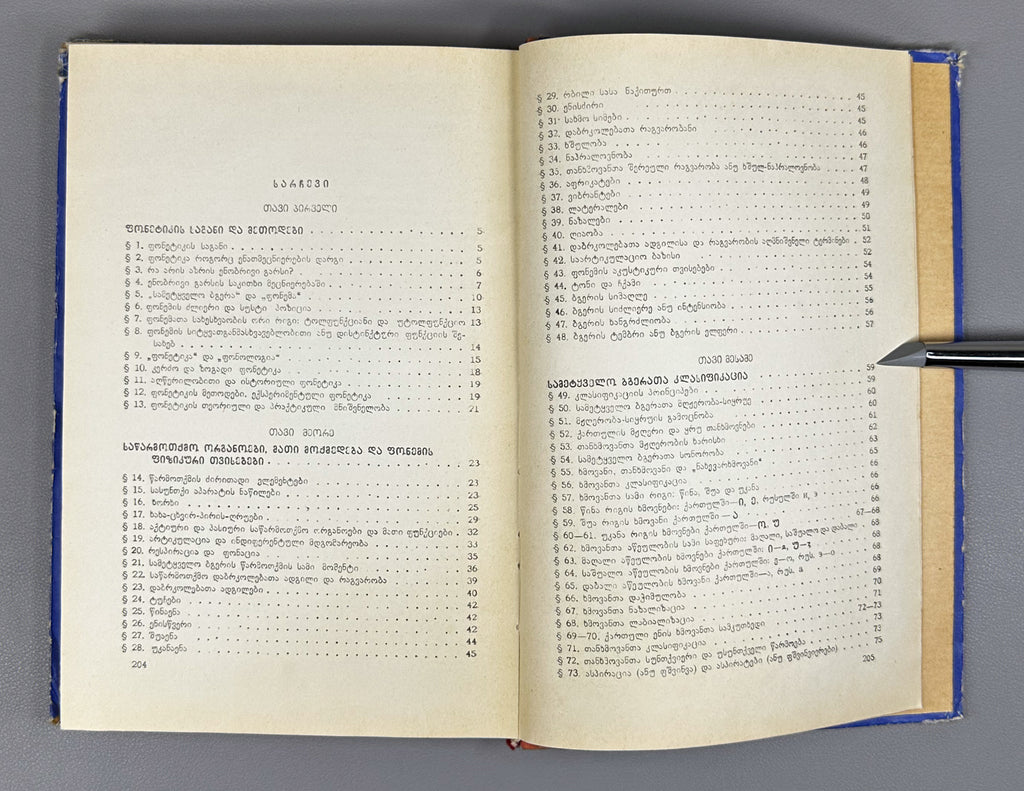 სარჩევი
თავი პირველი
ფონეტიკის საგანი და მეთოდები . . . . . . . . . . . . 5
§ 1. ფონეტიკის საგანი . . . . . . . . . . . . 5
§ 2. ფონეტიკა როგორც ენათმეცნიერების დარგი . . . . . . 5
§ 3. რა არის აზრის ენობრივი გარსი? . . . . . . . . 6
§ 4. ენობრივი გარსის საკითხი მეცნიერებაში . . . . . . . 7
§ 5. „სამეტყველო ბგერა“ და „ფონემა“ . . . . . . . . 10
§ 6. ფონემის ძლიერი და სუსტი პოზიცია . . . . . . . . 13
§ 7. ფონემათა სახესხვაობის ორი რიგი: ტოლფუნქციანი და უტოლფუნქციო 13
§ 8. ფონემის სიტყვათგანმასხვავებლობითი ანუ დისტინქტური ფუნქციის შე-
სახებ . . . . . . . . . . . . 14
§ 9. „ფონეტიკა“ და „ფონოლოგია“ . . . . . . . . 15
§ 10. კერძო და ზოგადი ფონეტიკა . . . . . . . . 18
§ 11. აღწერილობითი და ისტორიული ფონეტიკა . . . . . . 19
§ 12. ფონეტიკის მეთოდები. ექსპერიმენტული ფონეტიკა . . . . 19
§ 13. ფონეტიკის თეორიული და პრაქტიკული მნიშენელობა . . . . 21
თავი მეორე
საწარმოთქმო ორგანოები, მათი მოქმედება და ფონემის
ფიზიკური თვისებები . . . . . . . . . . . . 23
§ 14. წარმოთქმის ძირითადი ელემენტები . . . . . . . . 23
§ 15. სასუნთქი აპარატის ნაწილები . . . . . . . . 23
§ 16. ხორხი . . . . . . . . . . . . 25
§ 17. ხახა-ცხვირ-პირის-ღრუები . . . . . . . . 29
§ 18. აქტიური და პასიური საწარმოთქმო ორგანოები და მათი ფუნქციები . 32
§ 19. არტიკულაცია და ინდიფერენტული მდგომარეობა . . . . 33
§ 20. რესპირაცია და ფონაცია . . . . . . . . 35
§ 21. სამეტყველო ბგერის წარმოთქმის სამი მომენტი . . . . 36
§ 22. საწარმოთქმო დაბრკოლებათა ადგილი და რაგვარობა . . . . 39
§ 23. დაბრკოლებათა ადგილები . . . . . . . . 40
§ 24. ტუჩები . . . . . . . . . . . . 42
§ 25. წინაენა . . . . . . . . . . . . 42
§ 26. ენისწვერი . . . . . . . . . . . . 42
§ 27. შუაენა . . . . . . . . . . . . 44
§ 28. უკანაენა . . . . . . . . . . . . 45
204
§ 29. რბილი სასა ნაქითურთ . . . . . . . . 45
§ 30. ენისძირი . . . . . . . . . . . . 45
§ 31. სახმო სიმები . . . . . . . . . . . . 45
§ 32. დაბრკოლებათა რაგვარობანი . . . . . . . . 46
§ 33. ხშულობა . . . . . . . . . . . . 46
§ 34. ნაპრალოვნობა . . . . . . . . . . . . 47
§ 35. თანხმოვანთა შერეული რაგვარობა ანუ ხშულ-ნაპრალოვნობა . . . 47
§ 36. აფრიკატები . . . . . . . . . . . . 48
§ 37. ვიბრანტები . . . . . . . . . . . . 49
§ 38. ლატერალები . . . . . . . . . . . . 49
§ 39. ნაზალები . . . . . . . . . . . . 50
§ 40. ღიაობა . . . . . . . . . . . . 51
§ 41. დაბრკოლებათა ადგილისა და რაგვარობის აღმნიშენელი ტერმინები . 52
§ 42. საარტიკულაციო ბაზისი . . . . . . . . 52
§ 43. ფონემის აკუსტიკური თვისებები . . . . . . . . 54
§ 44. ტონი და ჩქამი . . . . . . . . 54
§ 45. ბგერის სიმაღლე . . . . . . . . 55
§ 46. ბგერის სიძლიერე ანუ ინტენსიობა . . . . . . . . 56
§ 47. ბგერის ხანგრძლიობა . . . . . . . . 56
§ 48. ბგერის ტემბრი ანუ ბგერის ელფერი . . . . . . . . 57
თავი მესამე
სამეტყველო ბგერათა კლასიფიკაცია . . . . . . . . 59
§ 49. კლასიფიკაციის პრინციპები . . . . . . . . 59
§ 50. სამეტყველო ბგერათა მჟღერობა-სიყრუე . . . . . . 60
§ 51. მჟღერობა-სიყრუის გამოცნობა . . . . . . . . 60
§ 52. ქართულის მჟღერი და ყრუ თანხმოვნები . . . . . . 61
§ 53. თანხმოვანთა მჟღერობის ხარისხი . . . . . . . . 62
§ 54. სამეტყველო ბგერათა სონორობა . . . . . . . . 63
§ 55. ხმოვანი, თანხმოვანი და „ნახევარხმოვანი“ . . . . . . 65
§ 56. თანხმოვანთა კლასიფიკაცია . . . . . . . . 66
§ 57. ხმოვანთა სამი რიგი: წინა, შუა და უკანა . . . . . . 66
§ 58. წინა რიგის ხმოვნები: ქართულში—ი, ე, რუსულში и, э . . . . 66
§ 59. შუა რიგის ხმოვანი ქართულში—ა . . . . . . . . 66
§ 60—61. უკანა რიგის ხმოვნები ქართულში—ო, უ . . . . 67—68
§ 62. ხმოვანთა აწეულობის სამი საფეხური: მაღალი, საშუალო და დაბალი 68
§ 63. მაღალი აწეულობის ხმოვნები ქართულში: . . . . 68
§ 64. საშუალო აწეულობის ხმოვნები ქართულში: ე—ო, რუს. э—о . . 68
§ 65. დაბალი აწეულობის ხმოვანი ქართულში—ა, რუს. а . . . . 68
§ 66. ხმოვანთა დაჭიმულობა . . . . . . . . 69
§ 67. ხმოვანთა ნაზალიზაცია . . . . . . . . 70
§ 68. ხმოვანთა ლაბიალიზაცია . . . . . . . . 71
§ 69—70. ქართული ენის ხმოვანთა სამკუთხედი . . . . 72—73
§ 71. თანხმოვანთა კლასიფიკაცია . . . . . . . . 73
§ 72. თანხმოვანთა სუნთქვიერი და უსუნთქველი წარმოება . . . . 73
§ 73. ასპირაცია (ანუ ფშვინვა) და ასპირატები (ანუ ფშვინვიერები) . . . 75
205